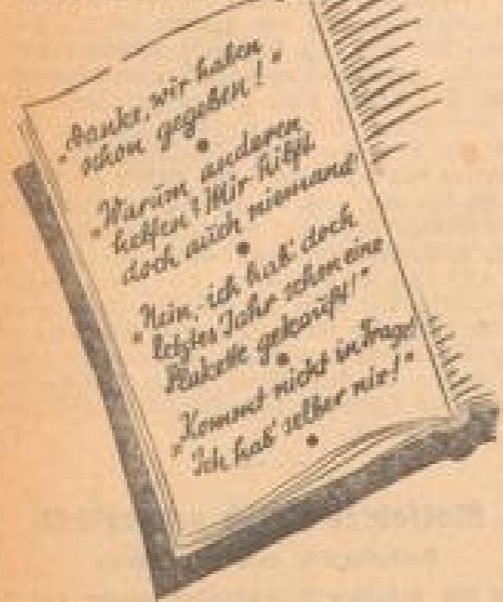 „Danke, wir haben
schon gegeben!“
„Warum anderen
helfen? Mir hilft
doch auch niemand!
„Nein, ich hab' doch
letztes Jahr schon eine
Plakette gekauft!“
„Kommt nicht in Frage!
„Ich hab' selber nix!“